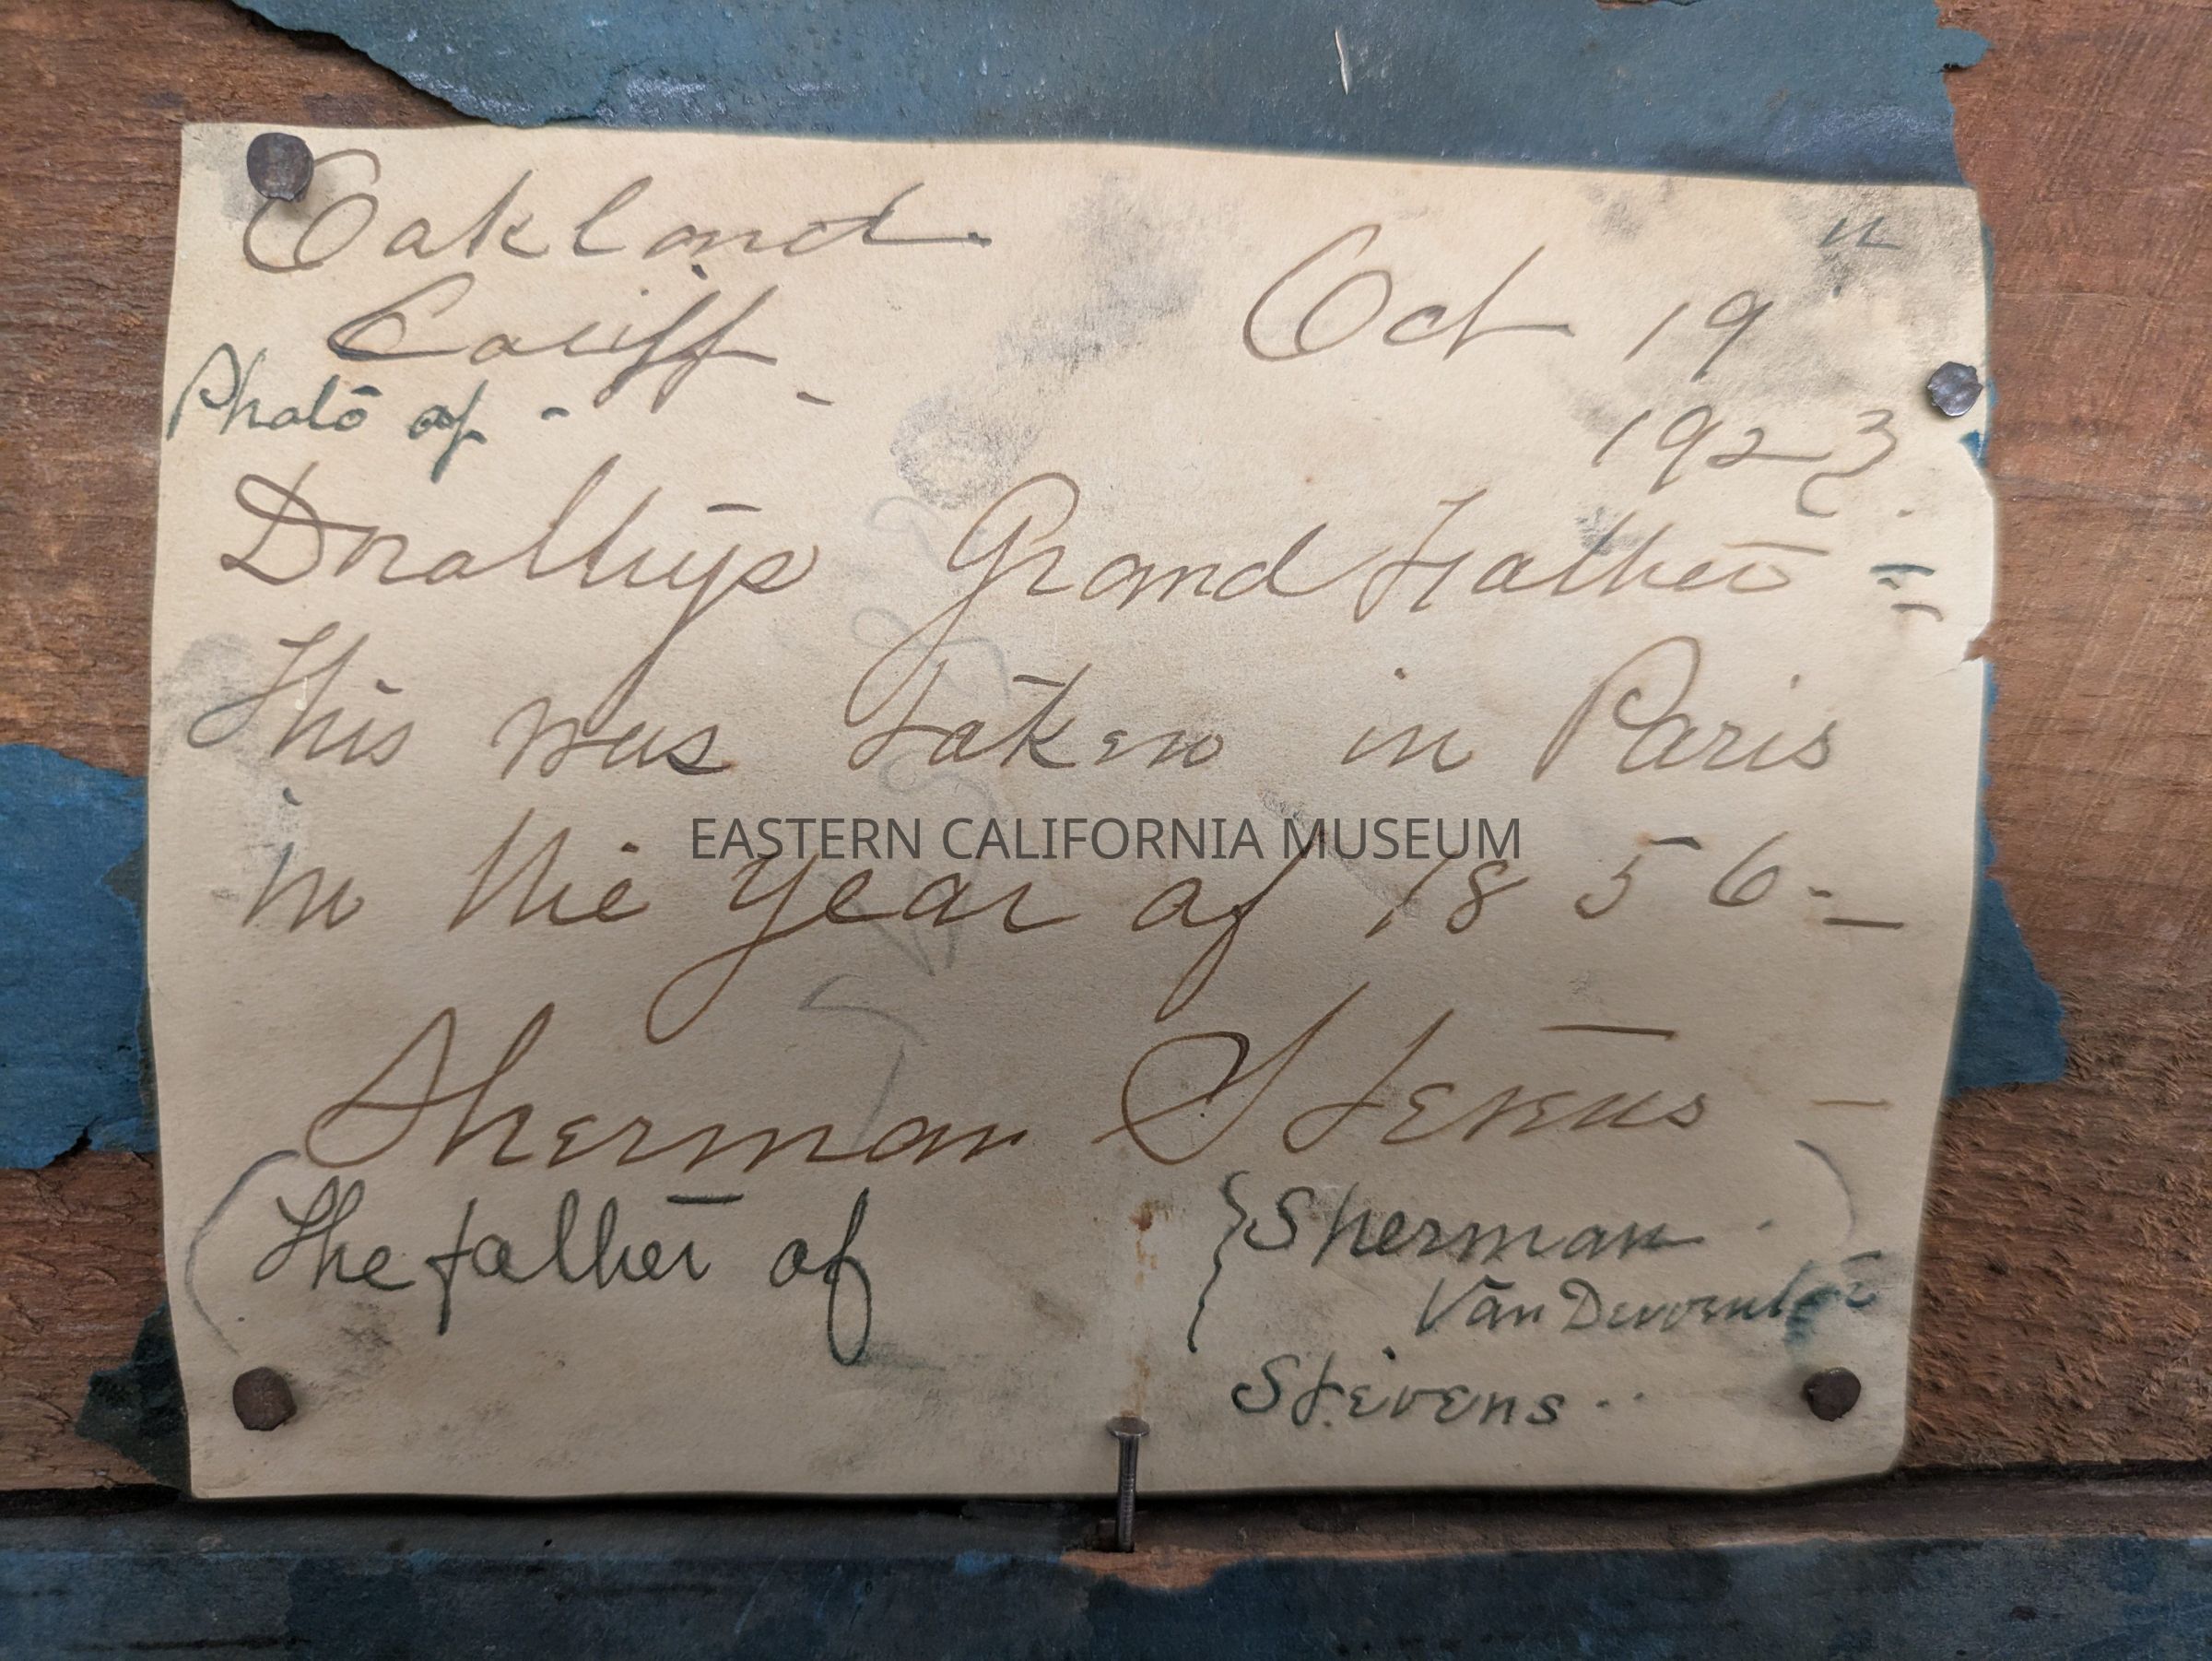 Oakland.
Califf - Oct 19 "
1923.
Photo of -
Dorathys Grand Father =
This was taken in Paris
in the year of 1856-
EASTERN CALIFORNIA MUSEUM
Sherman Stevens -
(The father of { Sherman )
Van Devventer
Stevens..